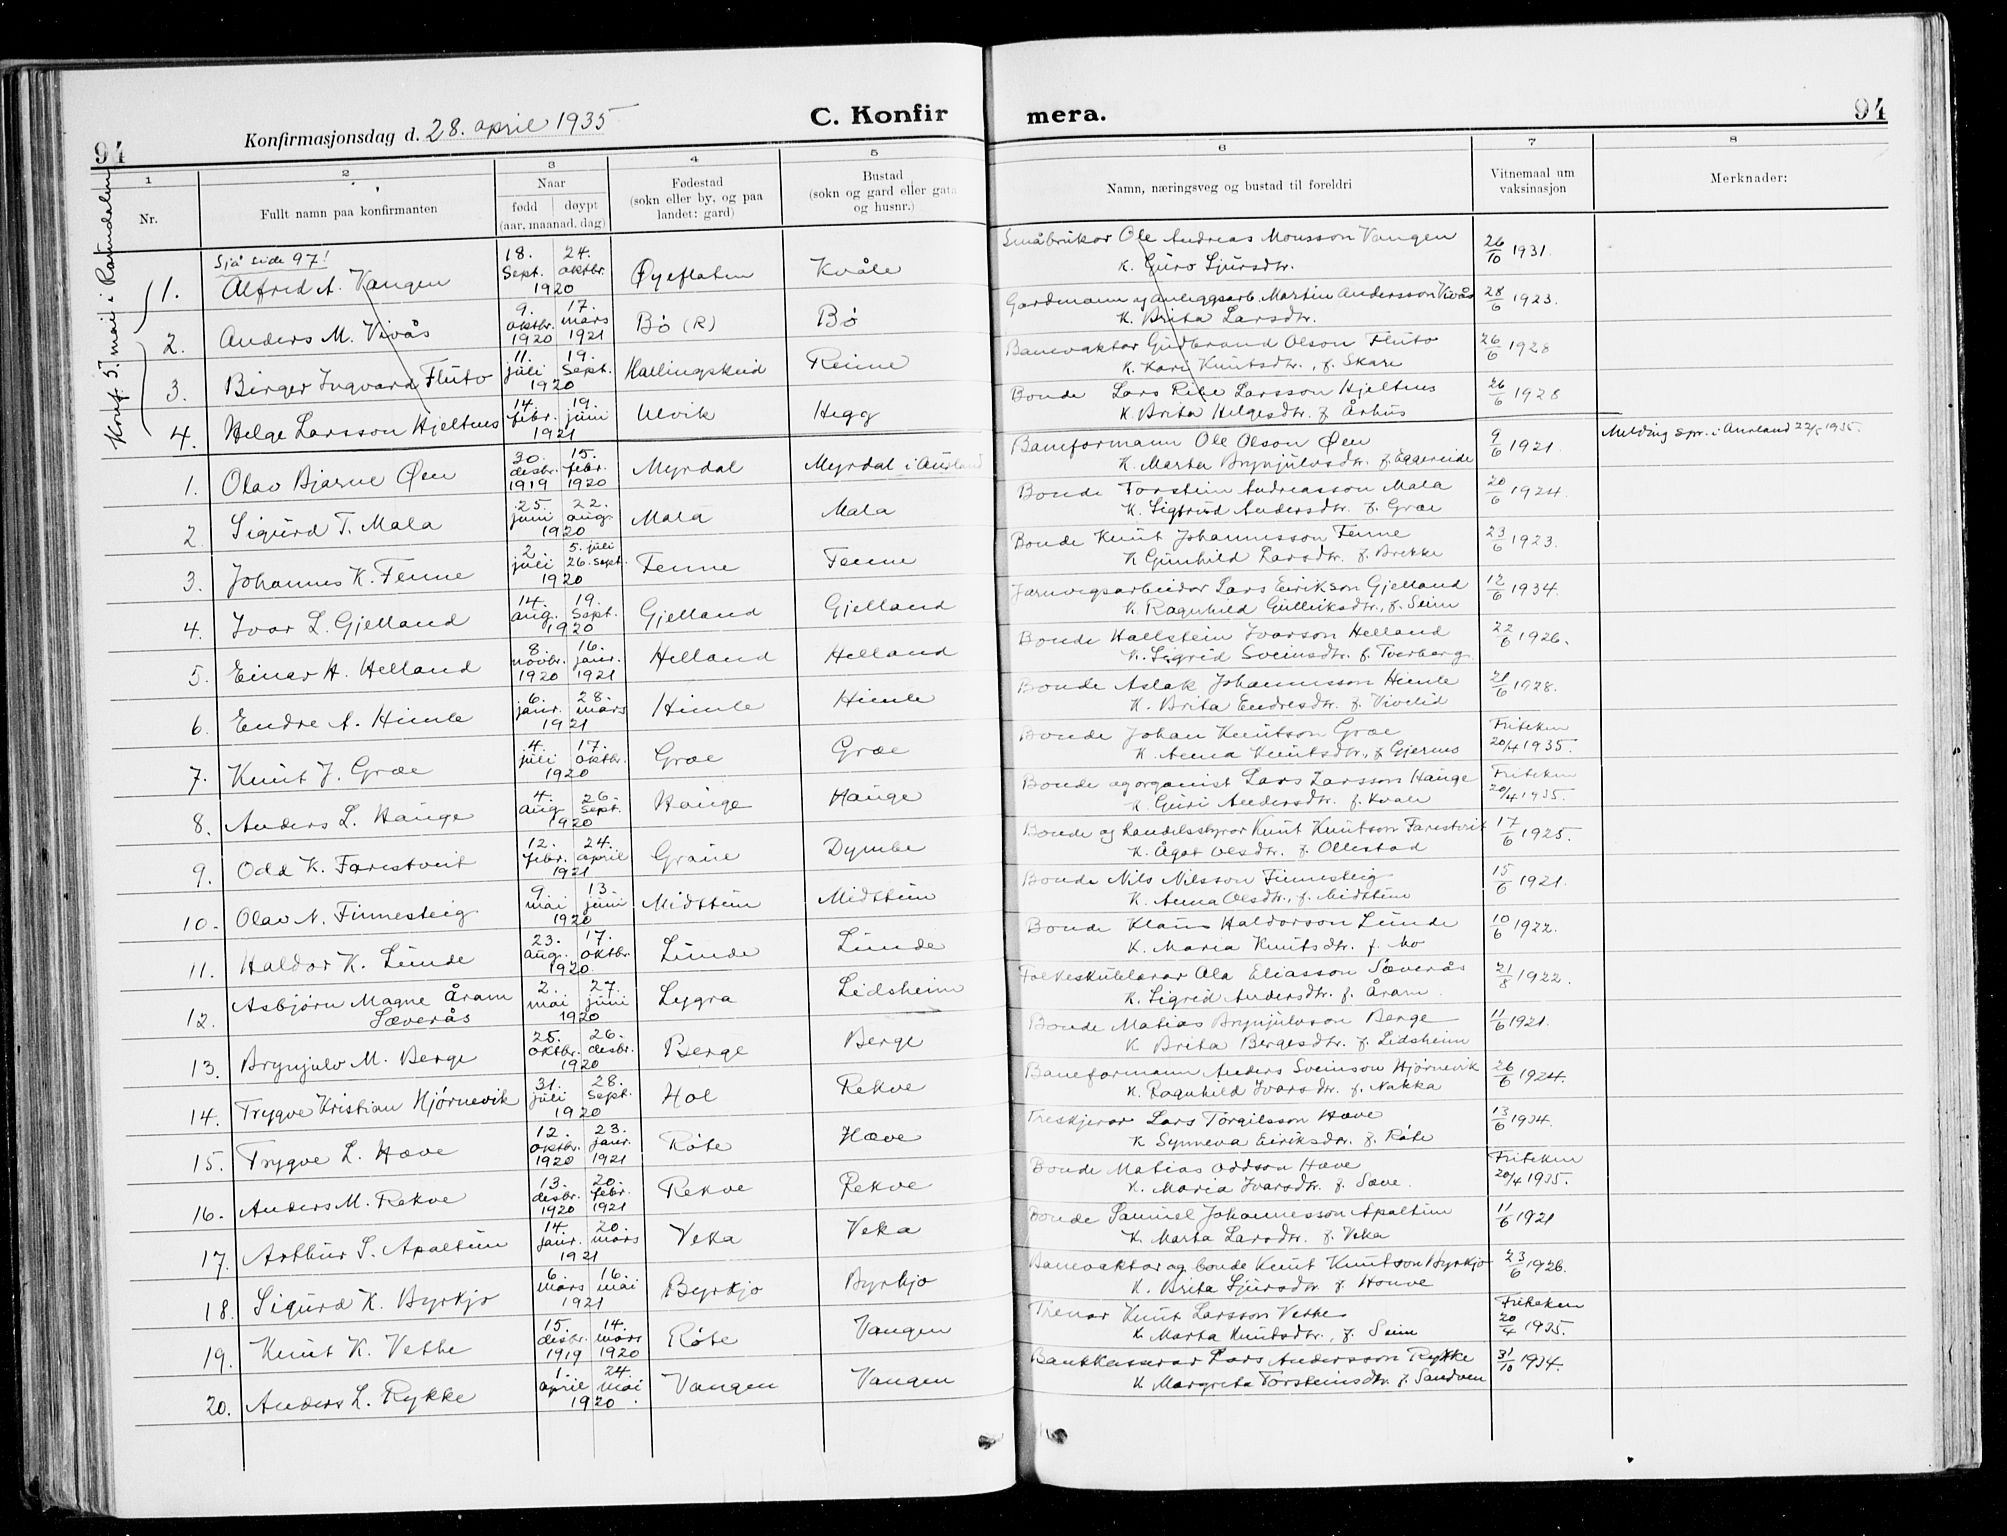 94
Konfirmasjonsdag d. 28. april 1935
C. Konfirmera.
94
1
2
3
4
5
6
7
8
Nr.
Fullt namn paa konfirmanten
Naar
fødd
døypt
(aar. maanad. dag)
Fødestad
(sokn eller by, og paa
landet: gard)
Bustad
(sokn og gard eller gata
og husnr.)
Namn, næringsveg og bustad til foreldri
Vitnemaal um
vaksinasjon
Merknader:
Konf. 5. mai i Raundalen
Sjå side 97!
1. Alfred A. Vangen 18. Sept. 24. oktbr. 1920 Øyeflaten Kvåle Småbrukar Ole Andreas Monsson Vangen 26/10 1931.
K. Guro Sjursdtr.
2. Anders M. Vivås 9. oktbr. 1920 17. mars 1921 Bø (R) Bø Gardmann og anleggsarb. Martin Andersson Vivås 28/6 1923.
K. Brita Larsdtr.
3. Birger Ingvard Fluto 11. juli 19. Sept. 1920 Hallingskeid Reime Banevaktar Gudbrand Olson Fluto 26/6 1928
K. Kari Knutsdtr., f. Skare
4. Helge Larsson Hjeltnes 14. febr. 19. juni 1921 Ulvik Hegg Bonde Lars Larsson Hjeltnes 26/6 1928
K. Brita Helgesdtr. f. Århus
1. Olav Bjarne Øen 30. desbr. 1919 15. febr. 1920 Myrdal Myrdal i Aurland Baneformann Ole Olson Øen 9/6 1921. Melding spr. i Aurland 22/5 1935.
K. Marta Brynjulvsdtr. f. Eggereide
2 Sigurd T. Mala 25. juni 22. aug. 1920 Mala Mala Bonde Torstein Andreasson Mala 20/6 1924.
K. Sigtrud Andersdtr. f. Græe
3. Johannes K. Fenne 2. juli 5. juli 26. sept. 1920 Fenne Fenne Bonde Knut Johannesson Fenne 23/6 1923.
K Gunhild Larsdtr. f. Brekke
4. Ivar L. Gjelland 14. aug. 19. Sept. 1920 Gjelland Gjelland Jarnvegsarbeidar Lars Eirikson Gjelland 12/6 1934.
K. Ragnhild Gulleiksdtr., f. Seim
5. Einar H. Helland 8. novbr. 1920 16. janr. 1921 Helland Helland Bonde Hallstein Ivarson Helland 22/6 1926.
K. Sigrid Sveinsdtr. f. Tverberg
6. Endre A. Himle 6. janr. 28. mars 1921 Himle Himle Bonde Aslak Johannesson Himle 21/6 1928.
K. Brita Endresdtr. f. Vivelid
7. Knut J. Græe 4. juli 17. oktbr. 1920 Græe Græe Bonde Johan Knutson Græe Friteken 20/4 1935.
K. Anna Knutsdtr., f. Gjernes
8. Anders L. Hauge 4. Aug. 26. Sept. 1920 Hauge Hauge Bonde og organist Lars Larsson Hauge Friteken 20/4 1935.
K. Guri Andersdtr. f. Kvale
9. Odd K. Farestveit 12. febr. 24. april 1921 Graue Dymbe Bonde og handelsstyrar Knut Knutson Farestveit 17/6 1925.
K. Ågot Olsdtr. f. Ollestad
10. Olav N. Finnesteig 9. mai 13. juni 1920 Midttun Midttun Bonde Nils Nilsson Finnesteig 15/6 1921.
K. Anna Olsdtr., f. Midttun
11. Haldor K. Lunde 23. aug. 17. oktbr. 1920 Lunde Lunde Bonde Klaus Haldorson Lunde 10/6 1922.
K. Maria Knutsdtr. f. Mo
12. Asbjørn Magne Åram Sæverås 2. mai 27. juni 1920 Lygra Lidsheim Folkeskulelærar Ola Eliasson Sæverås 21/8 1922.
K. Sigrid Andersdtr. f. Åram
13. Brynjulv M. Berge 25. oktbr. 26. desbr. 1920 Berge Berge Bonde Matias Brynjulvson Berge 11/6 1921.
K Brita Bergesdtr. f. Lidsheim
14. Trygve Kristian Hjørnevik 31. juli 28. Sept. 1920 Hol Rekve Baneformann Anders Sveinson Hjørnevik 26/6 1924.
K. Ragnhild Ivarsdtr. f. Nakka
15. Trygve L. Hæve 12. oktbr. 1920 23. janr. 1921 Røte Hæve Treskjerar Lars Torgilsson Hæve 13/6 1934.
K Synneva Eiriksdtr. f. Røte
16. Anders M. Rekve 13. desbr. 1920 20. febr. 1921 Rekve Rekve Bonde Matias Oddson Hæve Friteken 20/4 1935.
K. Maria Ivarsdtr. f. Sæve.
17. Arthur S. Apaltun 14. janr. 20. mars 1921 Veka Veka Bonde Samuel Johannesson Apaltun 11/6 1921
K. Marta Larsdtr. f. Veka
18. Sigurd K. Byrkjo 6. mars 16. mai 1921 Byrkjo Byrkjo Banevaktar og bonde Knut Knutson Byrkjo 23/6 1926.
K. Brita Sjursdtr. f. Honve
19. Knut K. Vethe 15. desbr. 1919 14. mars 1920 Røte Vangen Trenar Knut Larsson Vethe Friteken 20/4 1935.
K. Marta Knutsdtr., f. Seim
20. Anders L. Rykke 1. april 24. mai 1920 Vangen Vangen Bankkasserar Lars Andersson Rykke 31/10 1934.
K. Margreta Torsteinsdtr. f. Sandven